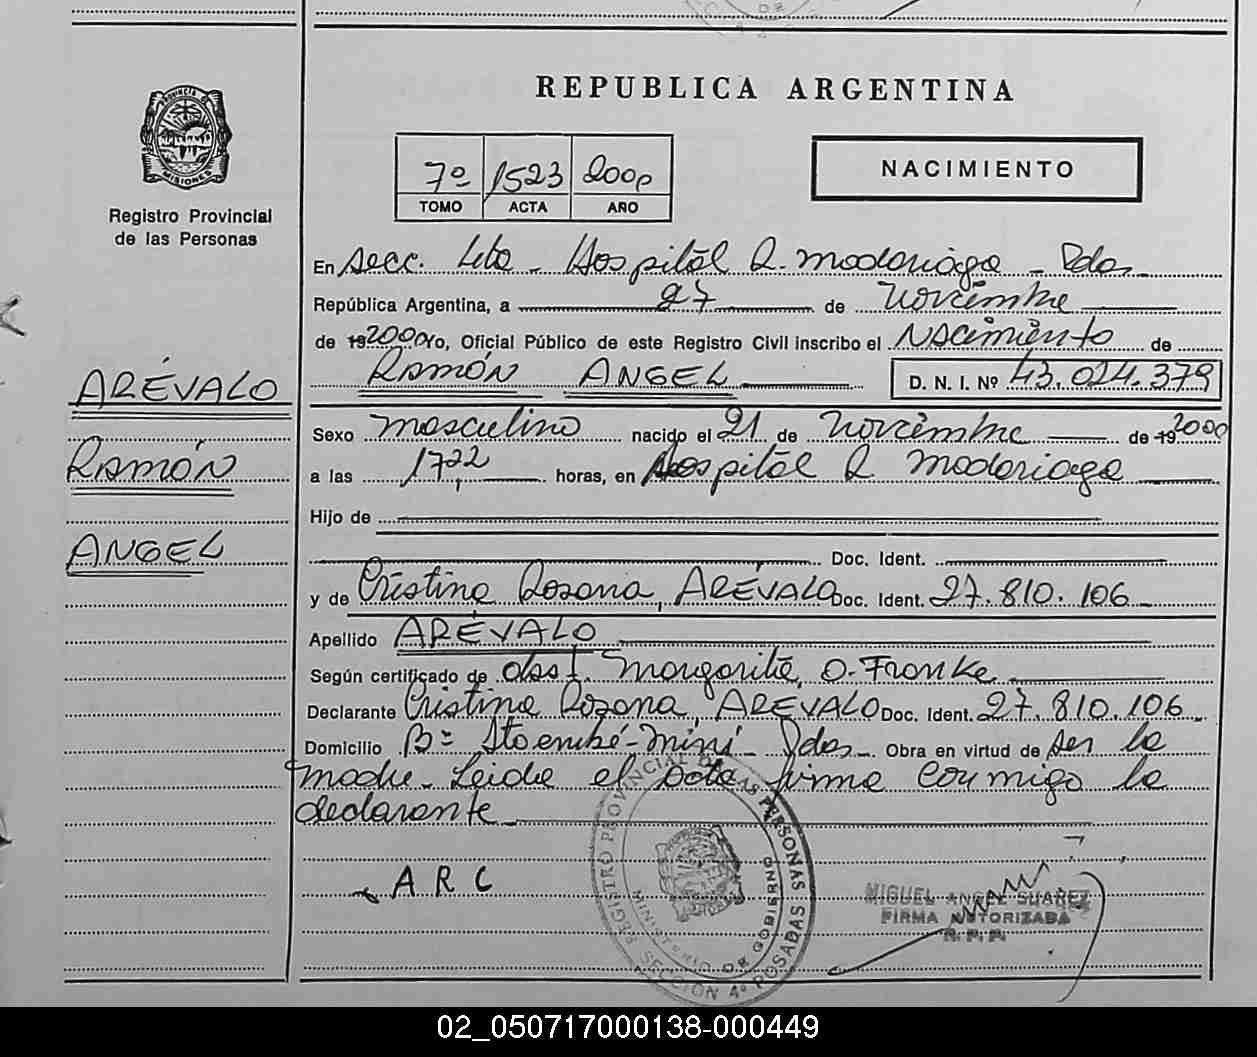 REPUBLICA ARGENTINA
PROVINCIA DE
MISIONES
Registro Provincial
de las Personas
7º 1523 2000
TOMO ACTA AÑO
NACIMIENTO
En Secc. 4ta - Hospital R. Madariaga - Pdas
República Argentina, a 27 de Noviembre
de 19 2000 Yo, Oficial Público de este Registro Civil inscribo el Nacimiento de
RAMÓN ANGEL D. N. I. Nº 43.024.379
ARÉVALO
RAMÓN
ANGEL
Sexo masculino nacido el 21 de Noviembre de 19 2000
a las 1722 horas, en Hospital R Madariaga
Hijo de
Doc. Ident.
y de Cristina Rosana, ARÉVALO Doc. Ident. 27.810.106
Apellido ARÉVALO
Según certificado de obst. Margarita, O. Franke
Declarante Cristina Rosana, ARÉVALO Doc. Ident. 27.810.106
Domicilio Bº Sto - Miní - Pdas - Obra en virtud de ser la
madre - Leida el acta firma conmigo la
declarante
A R C
REGISTRO PROVINCIAL DE LAS PERSONAS
MINISTERIO DE GOBIERNO
SECCIÓN 4º POSADAS
MIGUEL ANGEL SUAREZ
FIRMA AUTORIZADA
R. P. P.
02_050717000138-000449